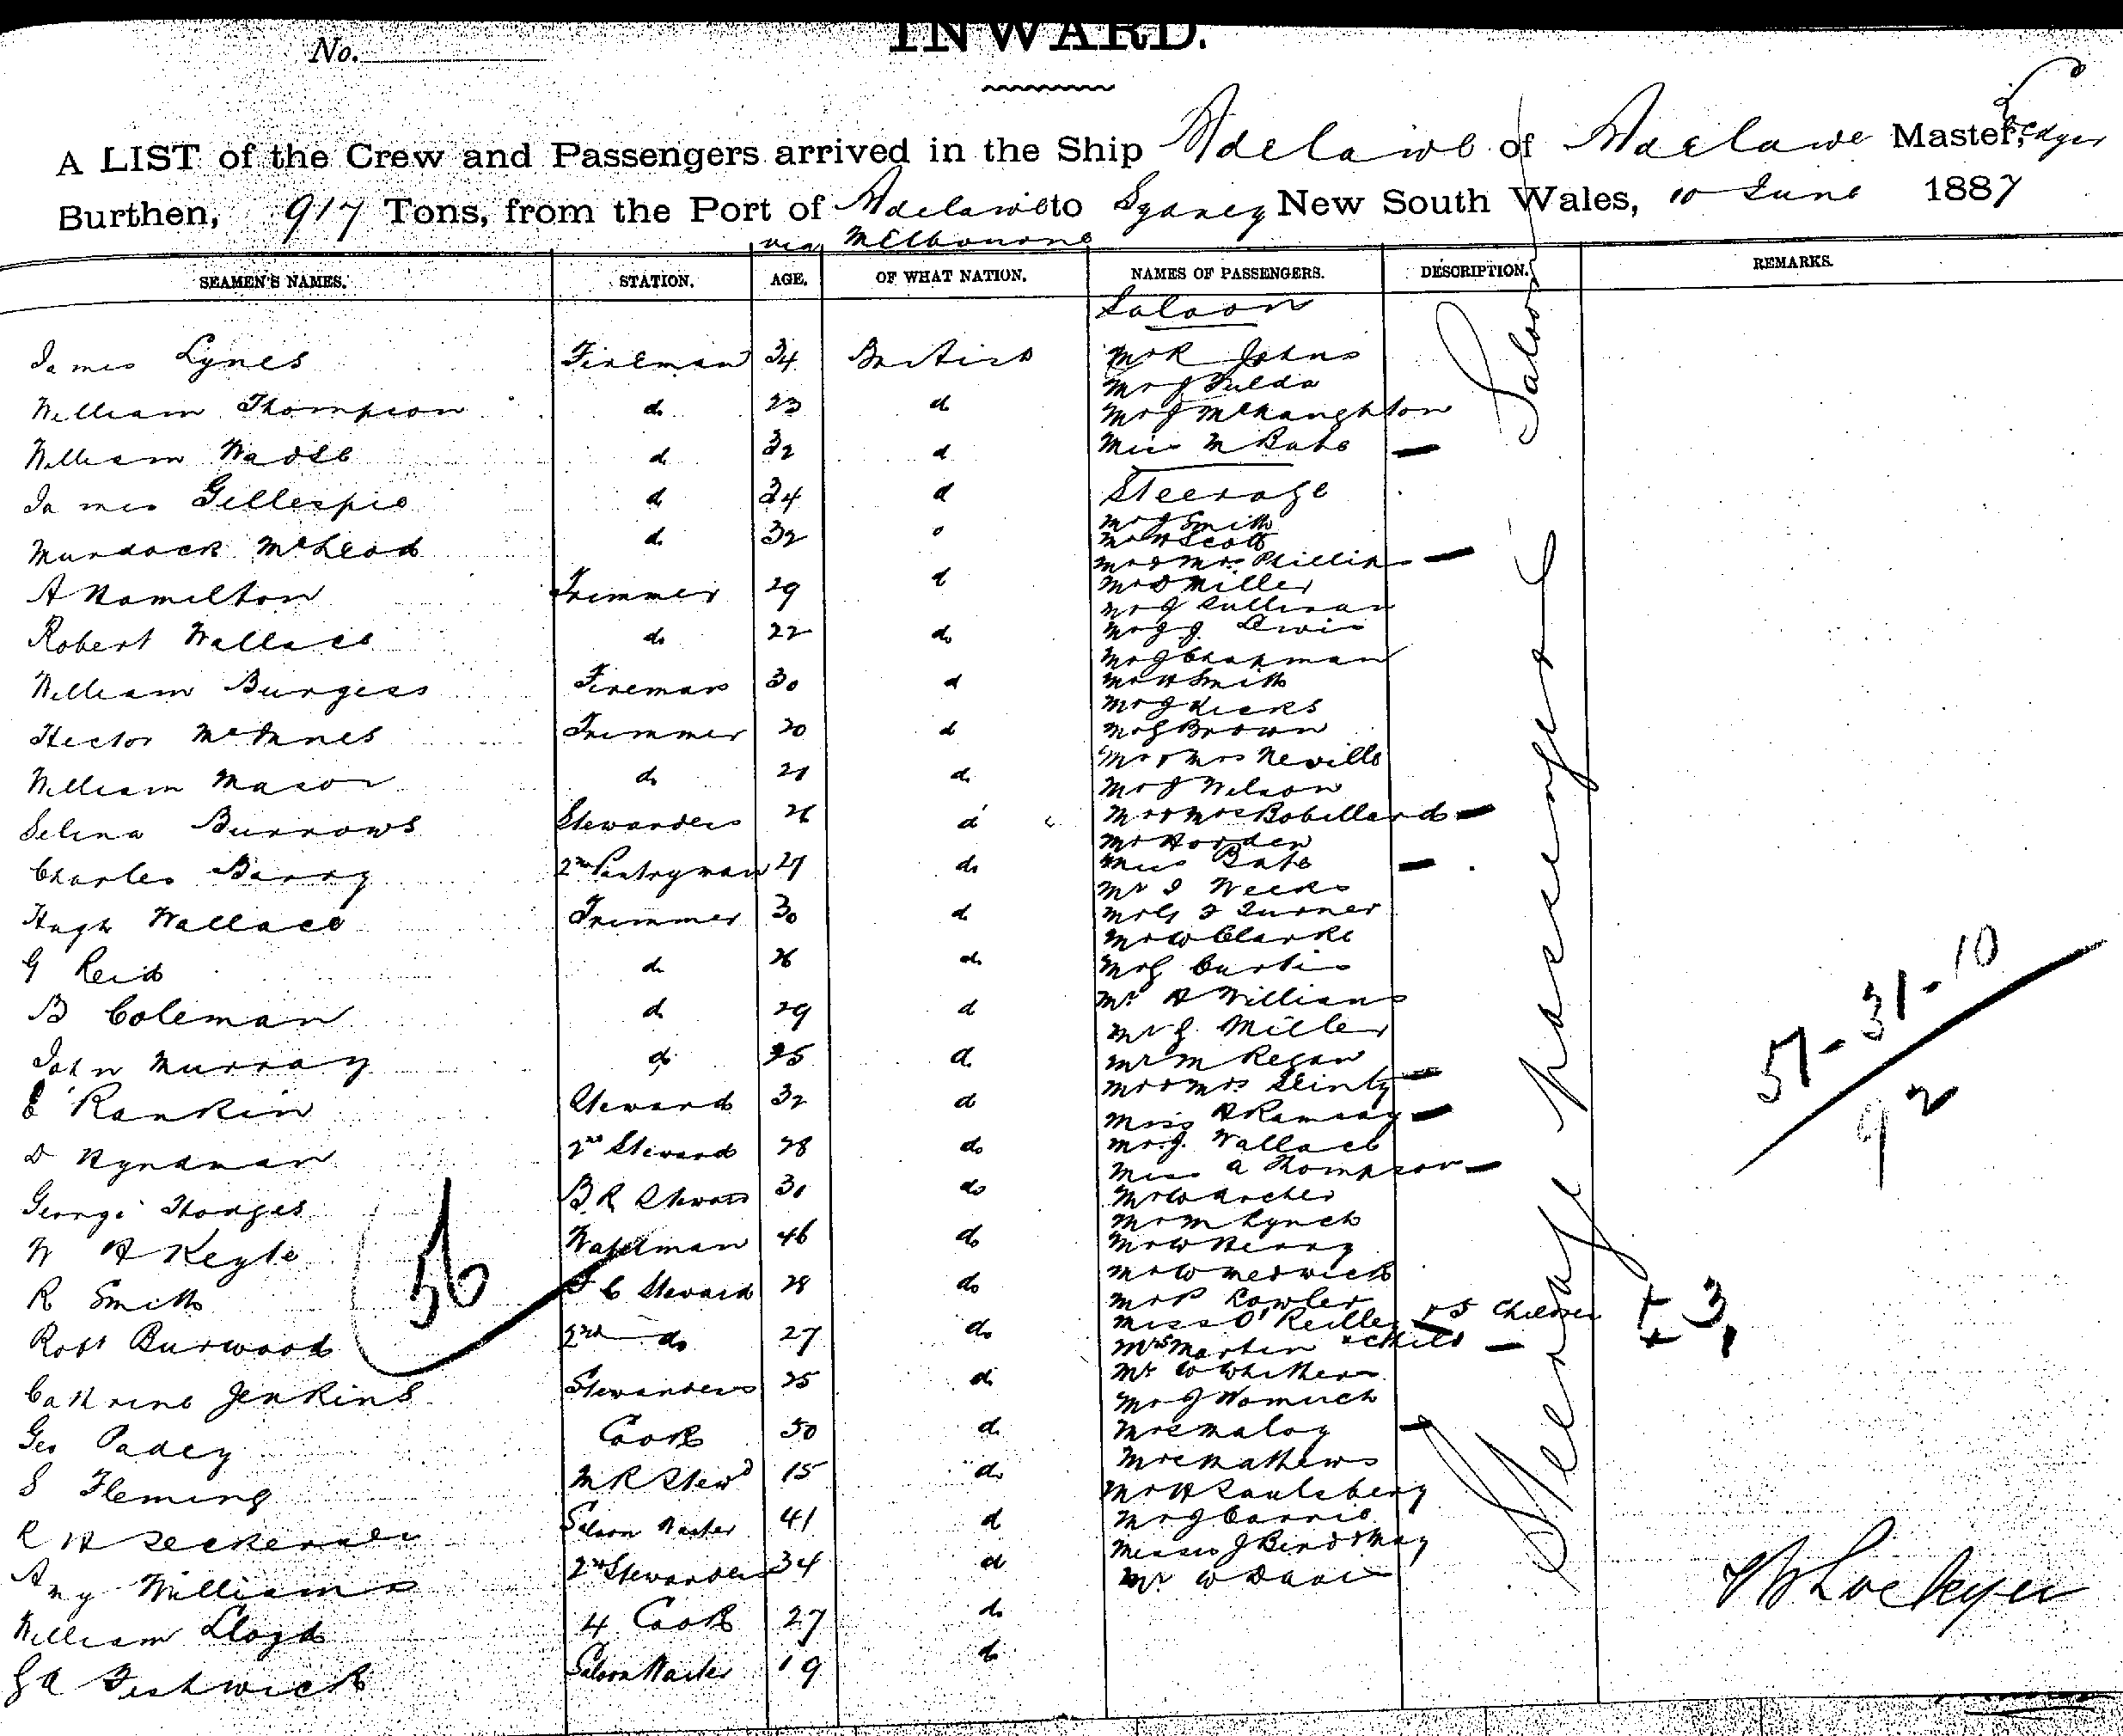 INWARD.
No.
A LIST of the Crew and Passengers arrived in the Ship Adelaide of Adelaide Master, Lockyer
Burthen, 917 Tons, from the Port of Adelaide to Sydney New South Wales, 10 June 1887
via Melbourne
SEAMEN'S NAMES. STATION. AGE. OF WHAT NATION. NAMES OF PASSENGERS. DESCRIPTION. REMARKS.
Saloon
James Lynes Fireman 34 British Mr R Johns
Mr J Fulda
William Thompson d 23 d Mr J McNaughton
William Wadle d 32 d Miss M Bate
James Gillespie d 34 d Steerage
Mr J Smith
Murdock McLeod d 32 Mr H Scott
Mr & Mrs Phillips
A Hamilton Trimmer 29 d Mr D Miller
Mr J Sullivan
Robert Wallace do 22 do Mr J J Lewis
Mr J Chapman
William Burgess Fireman 30 d Mr H Smith
Mr J Hicks
Hector McInnes Trimmer 20 d Mr G Brown
Mr & Mrs Neville
William Mason do 21 do Mr J Wilson
Selina Burrows Stewardess 26 d Mr & Mrs Robillard
Mr Horden
Charles Barry 2nd Pantryman 27 do Miss Bate
Mr J Weeks
Hugh Wallace Trimmer 30 d Mr G F Turner
Mr W Clarke
G Reid d 26 do Mr G Curtis
B Coleman d 29 d Mr H Williams
Mr G. Miller
John Murray do 25 d. Mr M Regan
Mr & Mrs
E Rankin Steward 32 d Miss A Ramsay
D Hyndman 2nd Steward 28 do Mr J. Wallace
Miss A Thompson
George Hodges B R Steward 31 do Mr W Archer
Mr M Lynch
W H Keyte 46 do Mr W Berry
Mr W
R Smith F C Steward 28 do Mr P Lawler
Miss O'Reilley & 5 Children
Robt Burwood 2nd do 27 do Mrs Martin & child
Mr W Whitken
Cathrine Jenkins Stewardess 25 d Mr J
Geo Padey Cook 50 d. Mrs Maloy
Mr C Mathews
S Fleming M R Stewd 15 do Mr H Saulsbery
R H Saloon Waiter 41 d Mr J Carrie
Misses J Bend & May
Amy Williams 2nd Stewardess 34 d Mr W Davis
William Lloyd 4 Cook 27 do
G A Fishwick Saloon Waiter 19 do
Saloon
Steerage passengers
56
+ 3
57 - 31 - 10
92
W Lockyer